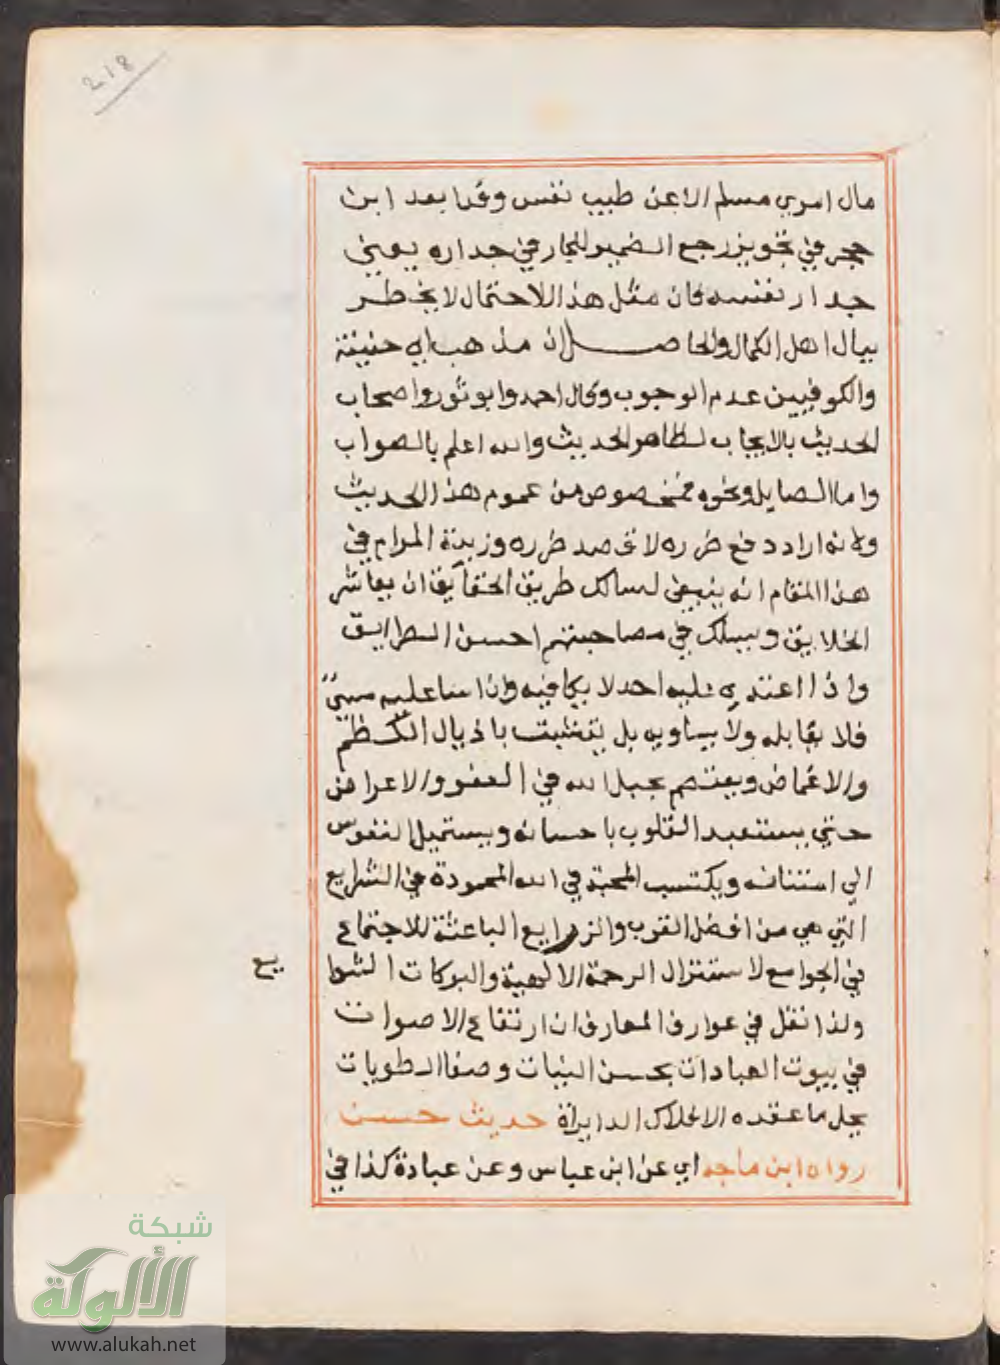 218
مال امري مسلم الا عن طيب نفس وقد ابعد ابن
حجر في تجويز رجع الضمير للجار في جداره يعني
جدار نفسه فان مثل هذا الاحتمال لا يخطر
ببال اهل الكمال والحاصل ان مذهب ابي حنيفة
والكوفيين عدم الوجوب وقال احمد وابو ثور واصحاب
الحديث بالايجاب لظاهر الحديث والله اعلم بالصواب
واما الصايل ونحوه فمخصوص من عموم هذا الحديث
ولانه اراد دفع ضرره لا قصد ضرره وزبدة المرام في
هذا المقام انه ينبغي لسالك طريق الحقايق ان يعاشر
الخلايق ويسلك في مصاحبتهم احسن الطرايق
واذا اعتدي عليه احد لا يكافيه وان اسا عليه مسيئ
فلا يقابله ولا يساويه بل يتشبث باذيال الكظم
والاغماض ويعتصم بحبل الله في العفو والاعراض
حتي يستعبد القلوب باحسانه ويستميل النفوس
الي استنانه ويكتسب المحبة في الله المحمودة في الشرايع
التي هي من افضل القرب والذرايع الباعثة للاجتماع
في الجوامع لاستنزال الرحمة الالهية والبركات الشوا
يع
ولذا نقل في عوارف المعارف ان ارتفاع الاصوات
في بيوت العبادات بحسن النيات وصفا الطويات
يحل ما عقده الافلاك الدايرة حديث حسن
رواه ابن ماجه اي عن ابن عباس وعن عبادة كذا في
شبكة
الألوكة
www.alukah.net